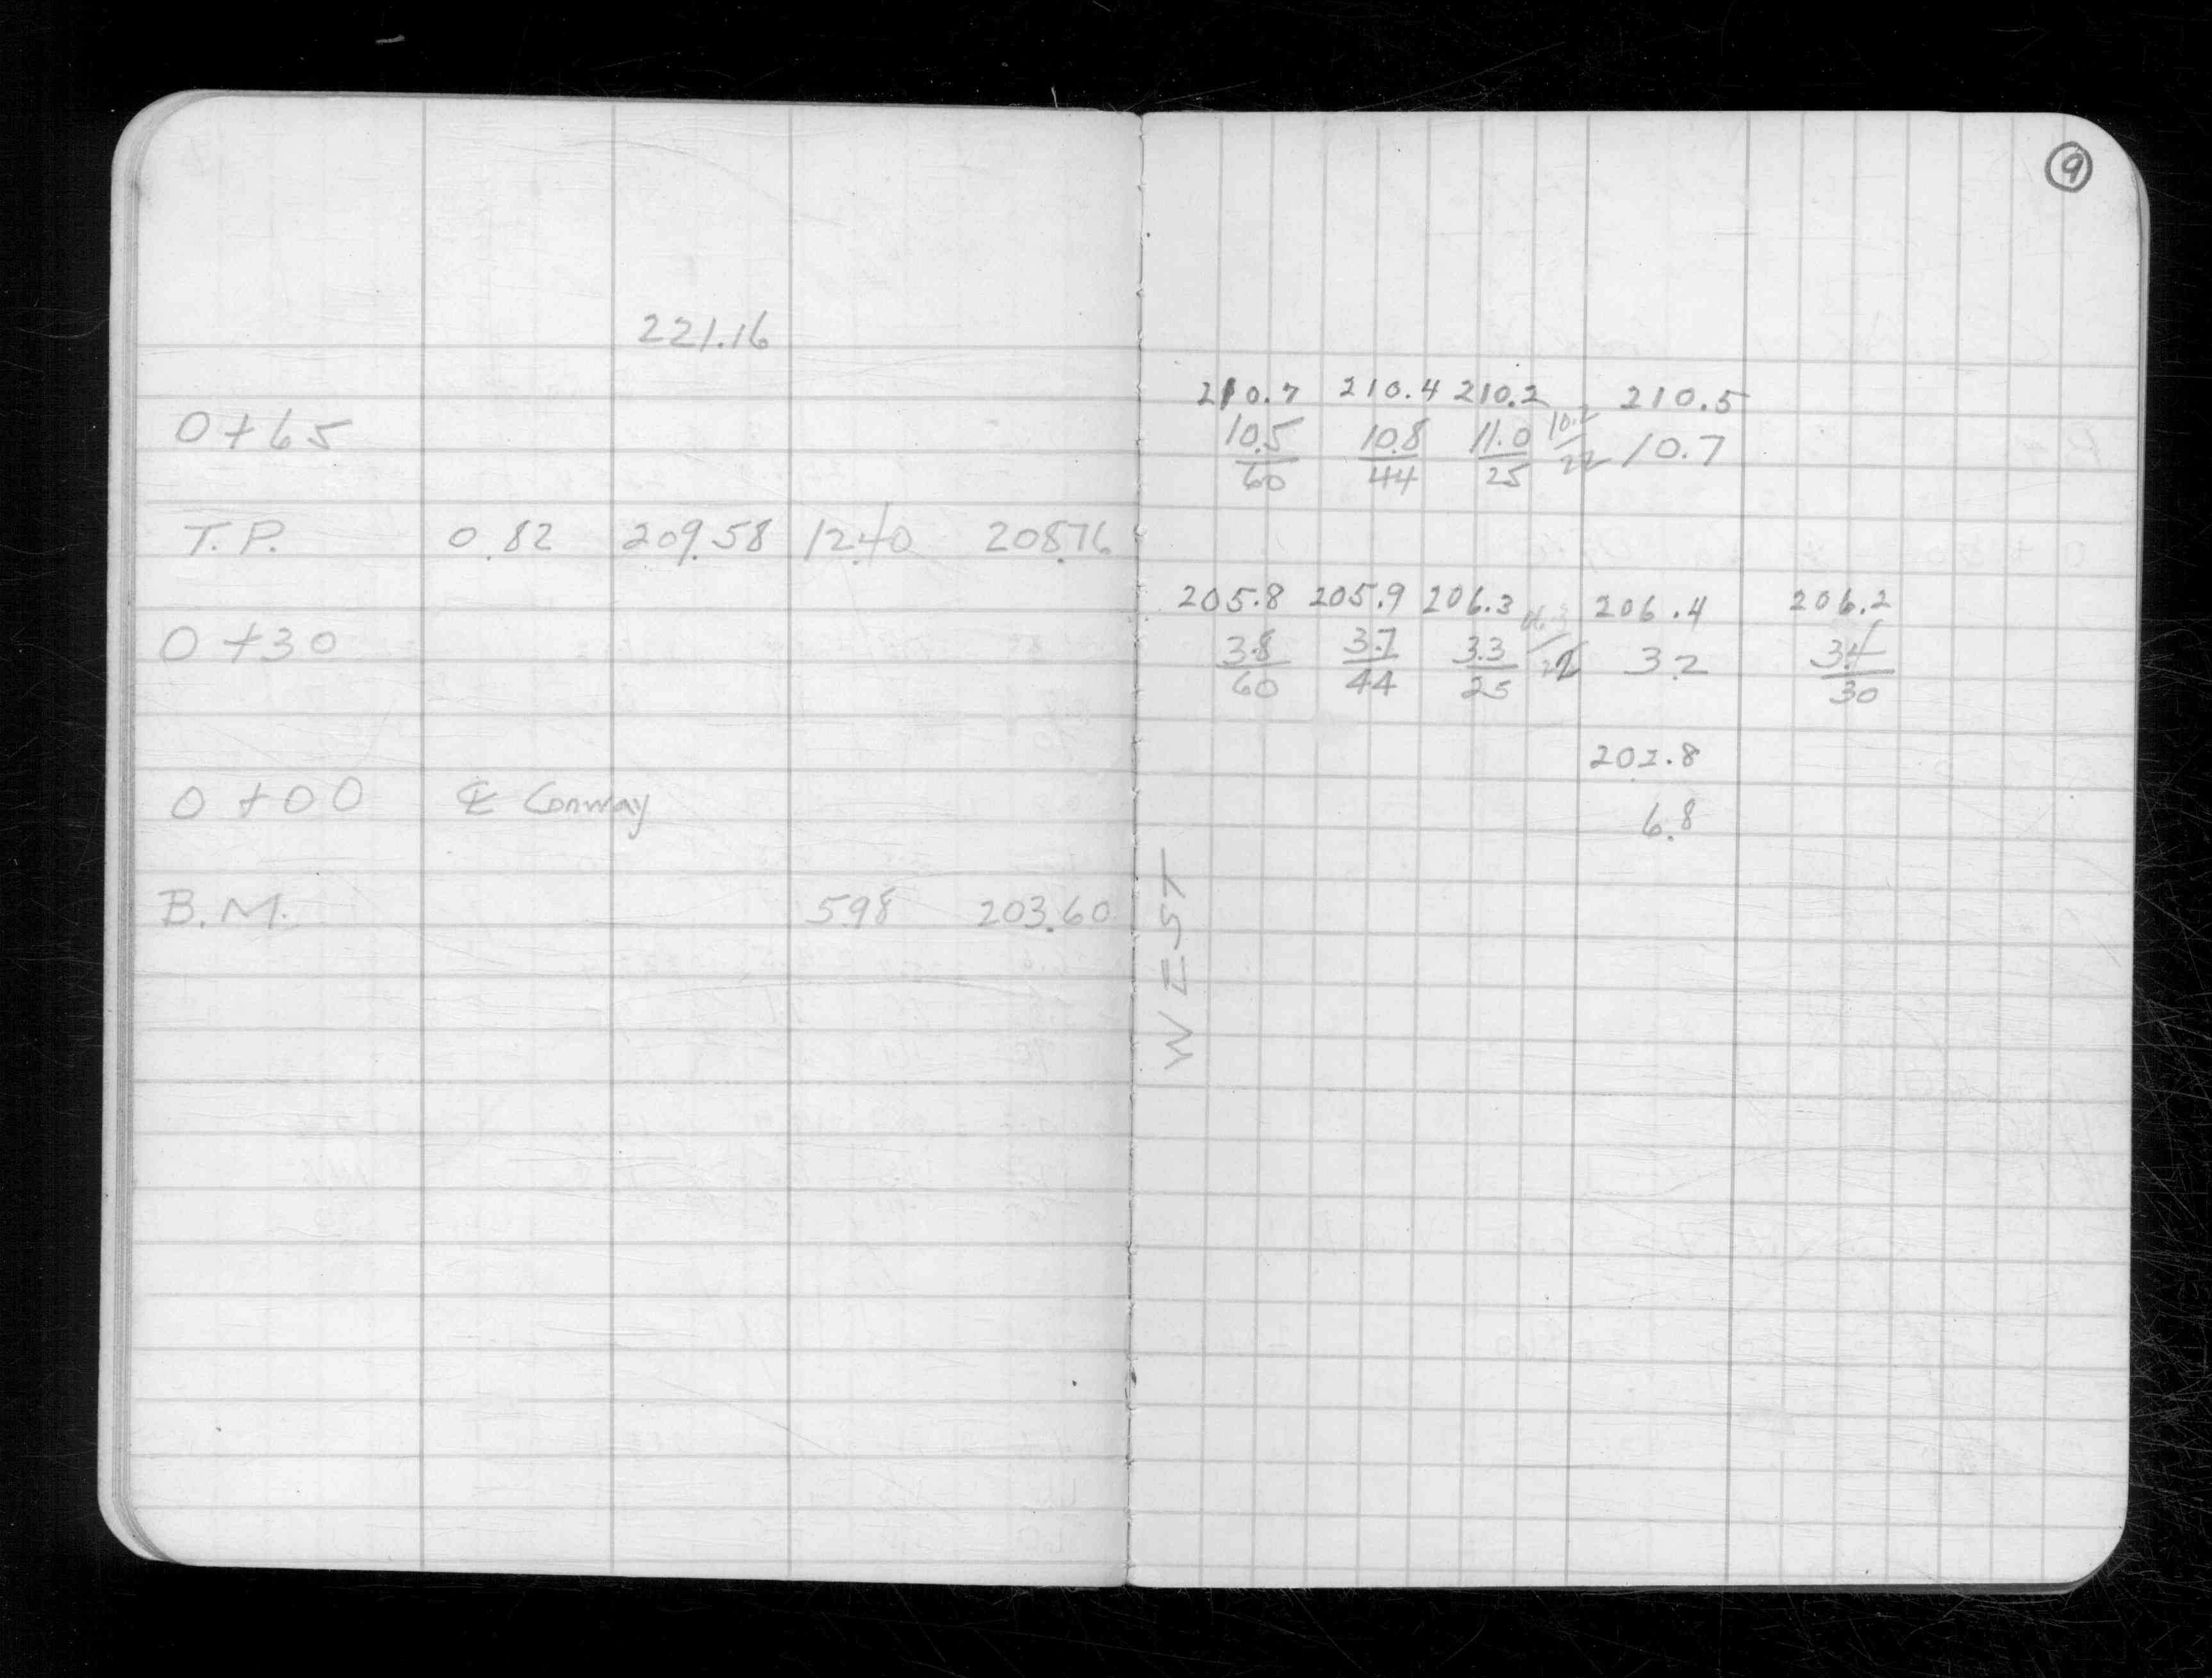 9
221.16
210.7 210.4 210.2 210.5
0+65 10.5/60 10.8/44 11.0/25 10.2/22 10.7
T.P. 0.82 209.58 12.40 208.76
205.8 205.9 206.3 206.4 206.2
0+30 3.8/60 3.7/44 3.3/25 3.2 3.4/30
202.8
0+00 ℄ Conway 6.8
B.M. 5.98 203.60
WEST